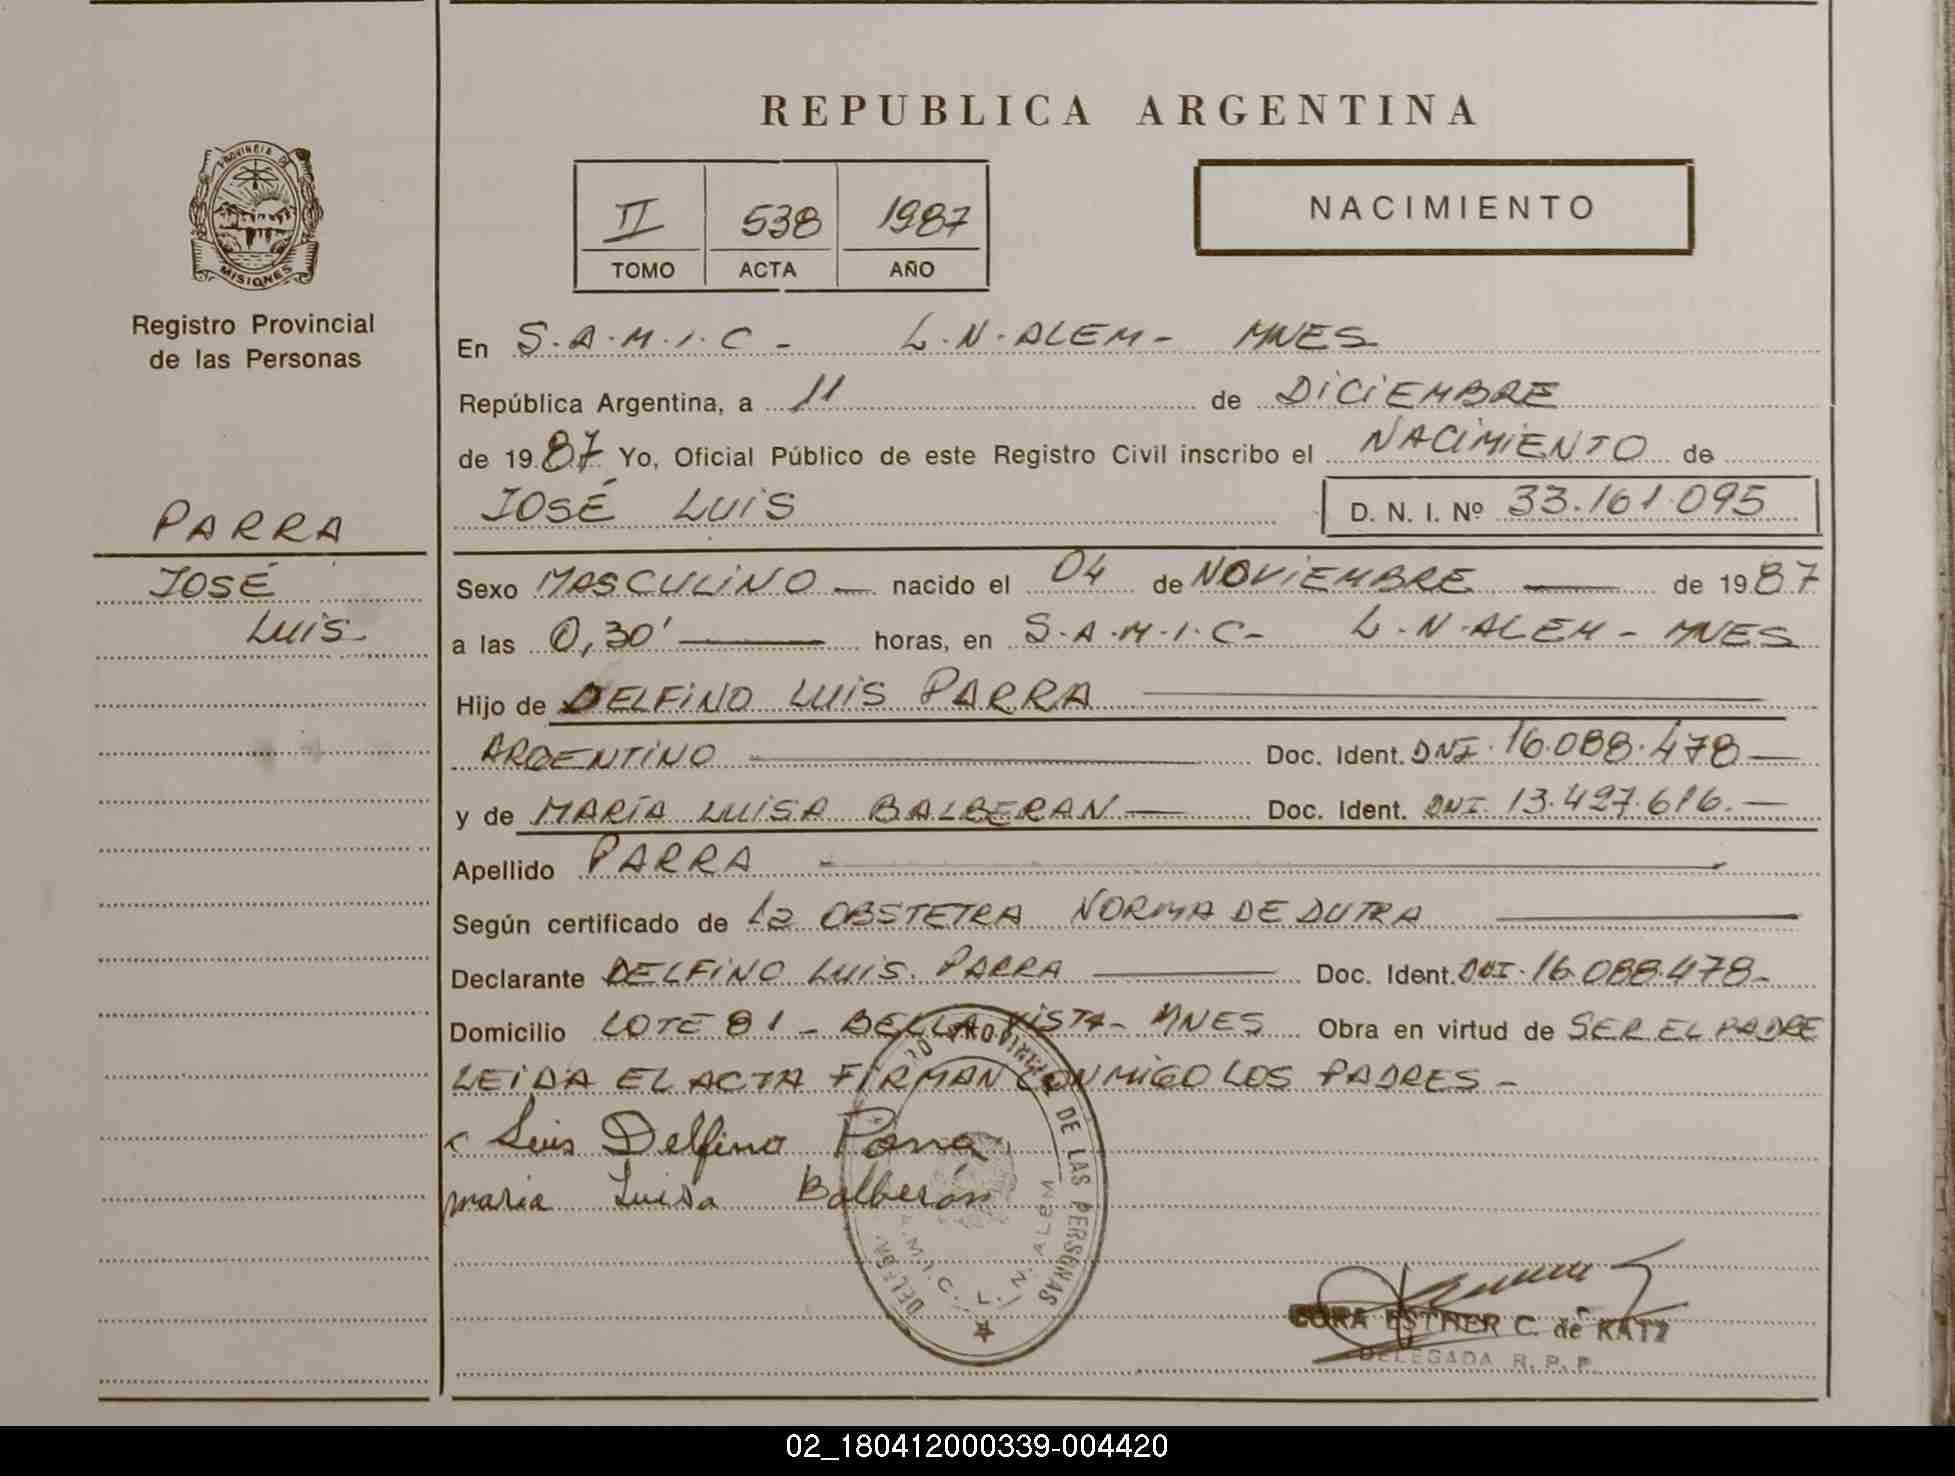 REPUBLICA ARGENTINA
PROVINCIA DE
MISIONES
Registro Provincial
de las Personas
II 538 1987
TOMO ACTA AÑO
NACIMIENTO
PARRA
JOSÉ
LUIS.
En S.A.M.I.C - L.N.ALEM - MNES
República Argentina, a 11 de DICIEMBRE
de 1987 Yo, Oficial Público de este Registro Civil inscribo el NACIMIENTO de
JOSÉ LUIS D. N. I. Nº 33.161.095
Sexo MASCULINO — nacido el 04 de NOVIEMBRE — de 1987
a las 0,30' — horas, en S.A.M.I.C- L.N.ALEM - MNES
Hijo de DELFINO LUIS PARRA
ARGENTINO — Doc. Ident. DNI. 16.088.478 —
y de MARÍA LUISA BALBERAN — Doc. Ident. DNI. 13.427.616. —
Apellido PARRA —
Según certificado de la OBSTETRA NORMA DE DUTRA —
Declarante DELFINO LUIS. PARRA — Doc. Ident. DNI. 16.088.478-
Domicilio LOTE 81 - BELLA VISTA - MNES Obra en virtud de SER EL PADRE
LEIDA EL ACTA FIRMAN CONMIGO LOS PADRES -
Luis Delfino Parra
maria Luisa Balberán
DE LAS PERSONAS
L. N. ALEM
CORA ESTHER C. de KATZ
DELEGADA R. P. P.
02_180412000339-004420